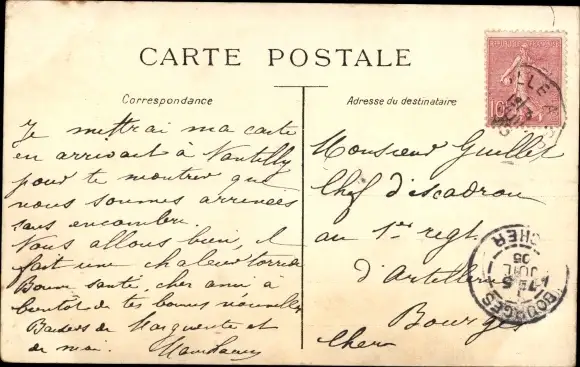 CARTE POSTALE
Correspondance
Je mettrai ma carte
en arrivant à Nantilly
pour te montrer que
nous sommes arrivées
sans encombre.
Nous allons bien, il
fait une chaleur torride
Bonne santé, cher ami à
bientôt de tes bonnes nouvelles
Baisers de Marguerite et
de moi.
Adresse du destinataire
Monsieur Guillet
Chef d'escadron
au 1er regt.
d'Artillerie
Bourges
Cher
10
BOURGES
JUIL
05
CHER